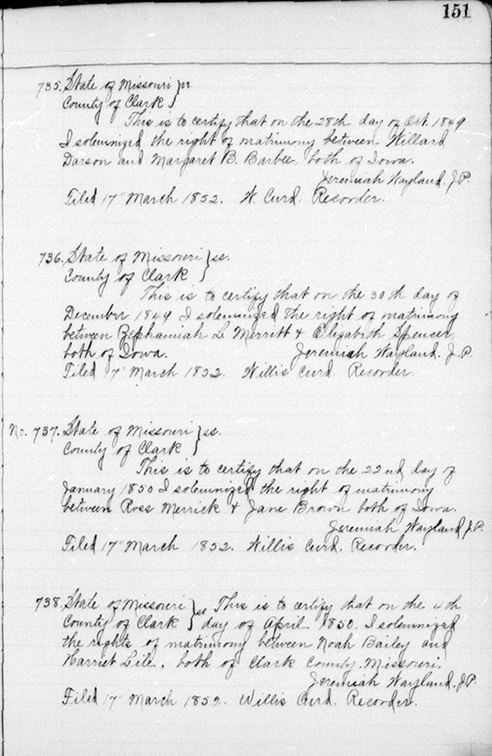 151
735. State of Missouri } ss.
County of Clark }
This is to certify that on the 28th day of Oct. 1849
I solemnized the right of matrimony between Willard
Darson and Margaret B. Barbee, both of Iowa.
Jeremiah Wayland. J.P.
Filed 17" March 1852. W. Curd. Recorder.
736. State of Missouri } ss.
County of Clark }
This is to certify that on the 30th day of
December 1849 I solemnized the right of matrimony
between Zephaniah L Merritt & Elizabeth Spencer,
both of Iowa. Jeremiah Wayland. J.P.
Filed 17" March 1852. Willis Curd Recorder
No. 737. State of Missouri } ss.
County of Clark }
This is to certify that on the 22nd day of
January 1850 I solemnized the right of matrimony
between Ross Merrick & Jane Brown both of Iowa.
Jeremiah Wayland J.P.
Filed 17" March 1852. Willis Curd. Recorder.
738. State of Missouri } ss This is to certify that on the 4th
County of Clark } day of April 1850. I solemnized
the rights of matrimony between Noah Bailey and
Harriet Sile, both of Clark County. Missouri.
Jeremiah Wayland. J.P.
Filed 17" March 1852. Willis Curd. Recorder.